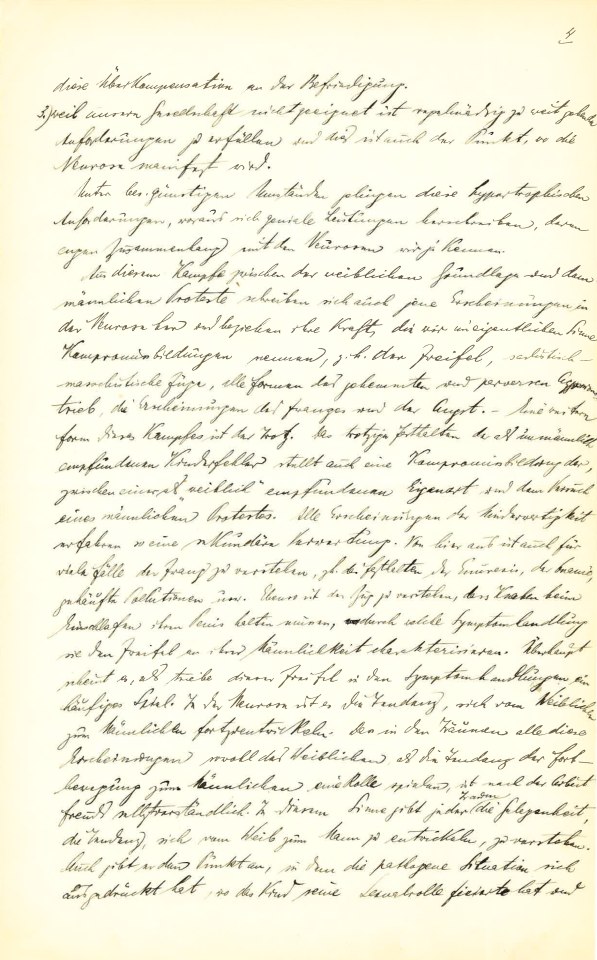 4
diese Überkompensation an der Befriedigung.
3.) weil unsere Gesellschaft nicht geeignet ist regelmässig so weit gehende
Anforderungen zu erfüllen und dies ist auch der Punkt, wo die
Neurose manifest wird.
Unter bes. günstigen Umständen gelingen diese hypertrophischen
Anforderungen, woraus sich geniale Leistungen herschreiben, deren
engen Zusammenhang mit den Neurosen wir ja kennen.
Aus diesem Kampfe zwischen der weiblichen Grundlage und dem
männlichen Proteste schreiben sich auch jene Erscheinungen in
der Neurose her und beziehen ihre Kraft, die wir im eigentlichen Sinne
Kompromissbildungen nennen, z.b. der Zweifel, sadistisch-
masochistische Züge, alle Formen des gehemmten und perversen Aggressions
trieb, die Erscheinungen des Zwanges und der Angst. – Eine weitere
Form dieses Kampfes ist der Trotz. Das trotzige Festhalten der als unmännlich
empfundenen Kinderfehler stellt auch eine Kompromissbildung dar,
zwischen einer als „weiblich" empfundenen Eigenart und dem Versuch
eines männlichen Protestes. Alle Erscheinungen der Minderwertigkeit
erfahren so eine sekundäre Verwertung. Von hier aus ist auch für
viele Fälle der Zwang zu verstehen, z.b. das Festhalten der Enuresis, der Onanie,
gehäufte Pollutionen usw. Ebenso ist der Zug zu verstehen, dass Knaben beim
Einschlafen ihren Penis halten müssen, durch welche Symptomhandlung
sie den Zweifel an ihrer Männlichkeit charakterisieren. Überhaupt
scheint es, als treibe dieser Zweifel in den Symptomhandlungen ein
häufiges Spiel. In der Neurose ist es die Tendenz, sich vom Weiblichen
zum Männlichen fortzuentwickeln. Dass in den Träumen alle diese
Erscheinungen sowohl des Weiblichen als die Tendenz der Fort-
bewegung zum Männlichen eine Rolle spielen, ist nach der Arbeit
Freuds selbstverständlich. In diesem Sinne gibt jeder Traum die Gelegenheit,
die Tendenz, sich vom Weib zum Mann zu entwickeln, zu verstehen.
Auch gibt er den Punkt an, in dem die pathogene Situation sich
ausgedrückt hat, wo das Kind seine Sexualrolle fixierte hat und